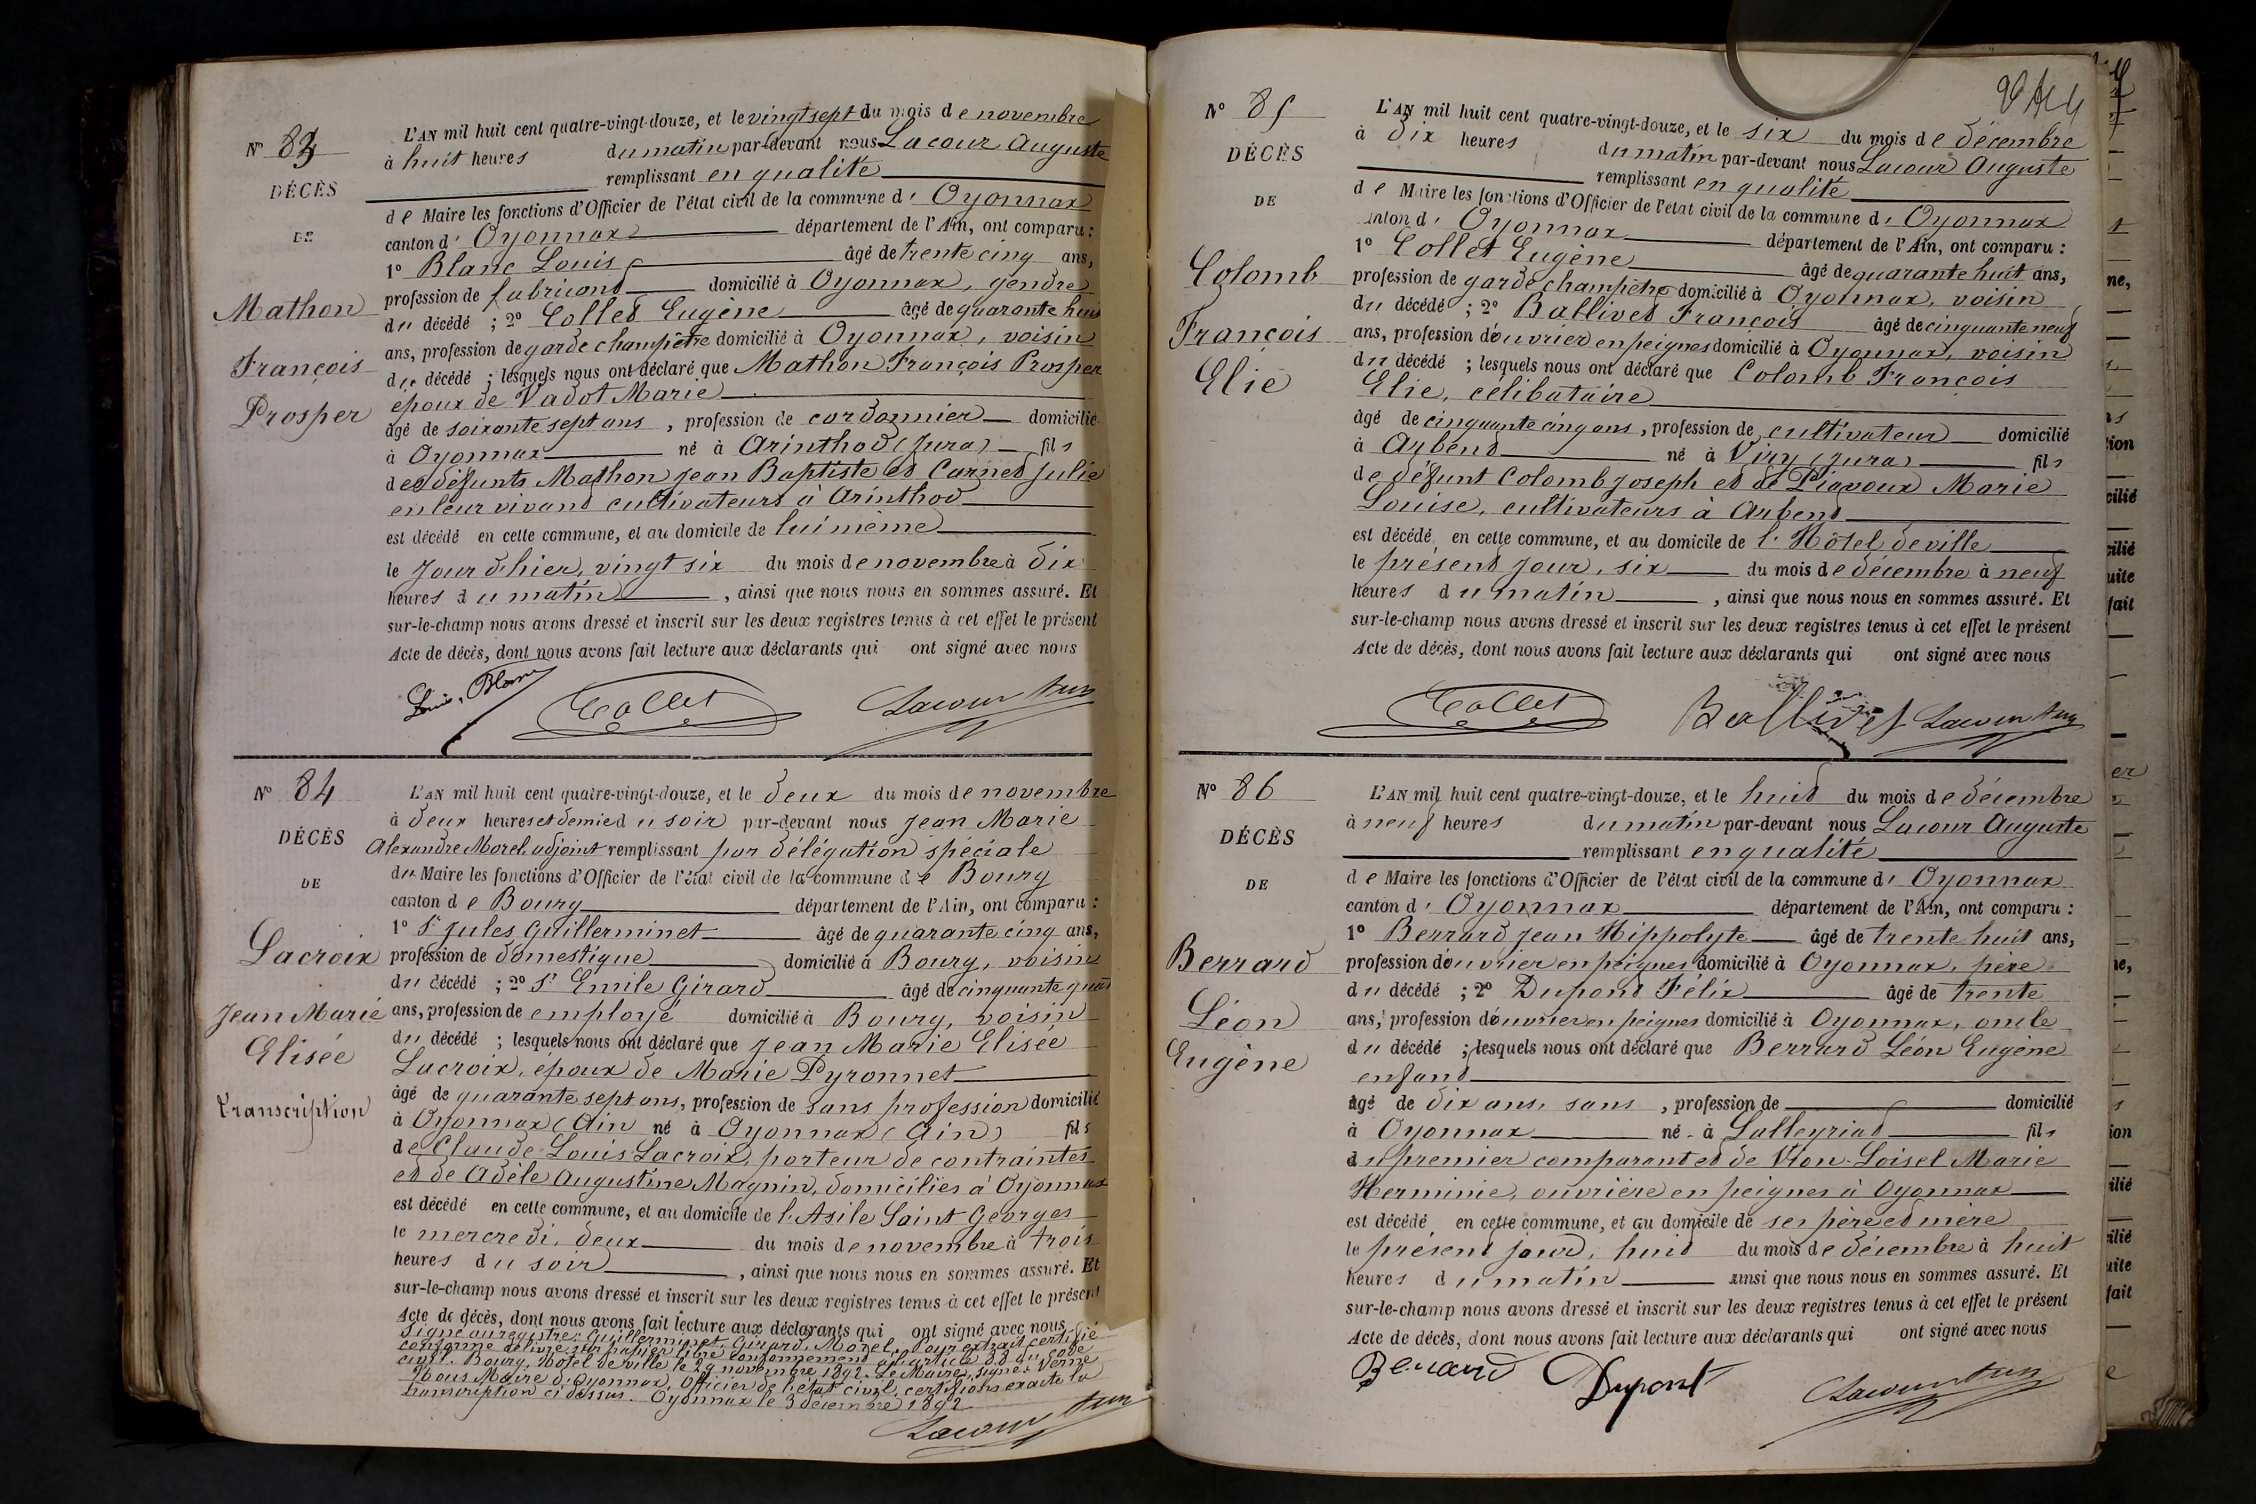 N° 83
DÉCÈS
DE
Mathon
François
Prosper
L'AN mil huit cent quatre-vingt-douze, et le vingt sept du mois de novembre
à huit heures du matin par-devant nous Lacour Auguste
remplissant en qualité
de Maire les fonctions d'Officier de l'état civil de la commune d' Oyonnax
canton d' Oyonnax département de l'Ain, ont comparu :
1° Blanc Louis âgé de trente cinq ans,
profession de fabricant domicilié à Oyonnax, gendre
du décédé ; 2° Collet Eugène âgé de quarante huit
ans, profession de garde champêtre domicilié à Oyonnax, voisin
du décédé ; lesquels nous ont déclaré que Mathon François Prosper
époux de Vadot Marie
âgé de soixante sept ans, profession de cordonnier domicilié
à Oyonnax né à Arinthod (Jura) fils
des défunts Mathon Jean Baptiste et Carnet Julie
en leur vivant cultivateurs à Arinthod
est décédé en cette commune, et au domicile de lui même
le jour d'hier, vingt six du mois de novembre à dix
heures du matin, ainsi que nous nous en sommes assuré. Et
sur-le-champ nous avons dressé et inscrit sur les deux registres tenus à cet effet le présent
Acte de décès, dont nous avons fait lecture aux déclarants qui ont signé avec nous
Louis Blanc Collet Lacour
N° 84
DÉCÈS
DE
Lacroix
Jean Marie
Elisée
transcription
L'AN mil huit cent quatre-vingt-douze, et le deux du mois de novembre
à deux heures et demie du soir par-devant nous Jean Marie
Alexandre Morel, adjoint remplissant par délégation spéciale
du Maire les fonctions d'Officier de l'état civil de la commune de Bourg
canton de Bourg département de l'Ain, ont comparu :
1° Sr Jules Guillerminet âgé de quarante cinq ans,
profession de domestique domicilié à Bourg, voisin
du décédé ; 2° Sr Emile Girard âgé de cinquante quat
ans, profession de employé domicilié à Bourg, voisin
du décédé ; lesquels nous ont déclaré que Jean Marie Elisée
Lacroix, époux de Marie Pyronnet
âgé de quarante sept ans, profession de sans profession domicilié
à Oyonnax (Ain né à Oyonnax (Ain) fils
de Claude Louis Lacroix, porteur de contraintes
et de Adèle Augustine Magnin, domiciliés à Oyonnax
est décédé en cette commune, et au domicile de l'Asile Saint Georges
le mercredi, deux du mois de novembre à trois
heures du soir, ainsi que nous nous en sommes assuré. Et
sur-le-champ nous avons dressé et inscrit sur les deux registres tenus à cet effet le présent
Acte de décès, dont nous avons fait lecture aux déclarants qui ont signé avec nous
Signé au registre : Guillerminet, Girard, Morel, Pour extrait certifié
conforme délivré sur papier libre conformément à l'article 80 du code
civil. Bourg, Hôtel de ville le 29 novembre 1892. Le Maire, signé : Verne
Nous Maire d'Oyonnax, Officier de l'état civil, certifions exacte la
transcription ci dessus. Oyonnax le 3 décembre 1892
Lacour
N° 85
DÉCÈS
DE
Colomb
François
Elie
L'AN mil huit cent quatre-vingt-douze, et le six du mois de décembre
à dix heures du matin par-devant nous Lacour Auguste
remplissant en qualité
de Maire les fonctions d'Officier de l'état civil de la commune d' Oyonnax
canton d' Oyonnax département de l'Ain, ont comparu :
1° Collet Eugène âgé de quarante huit ans,
profession de garde champêtre domicilié à Oyonnax, voisin
du décédé ; 2° Ballivet François âgé de cinquante neuf
ans, profession d'ouvrier en peignes domicilié à Oyonnax, voisin
du décédé ; lesquels nous ont déclaré que Colomb François
Elie, célibataire
âgé de cinquante cinq ans, profession de cultivateur domicilié
à Arbent né à Viry (Jura) fils
de défunt Colomb Joseph et de Piavoux Marie
Louise, cultivateurs à Arbent
est décédé en cette commune, et au domicile de l'Hôtel de ville
le présent jour, six du mois de décembre à neuf
heures du matin, ainsi que nous nous en sommes assuré. Et
sur-le-champ nous avons dressé et inscrit sur les deux registres tenus à cet effet le présent
Acte de décès, dont nous avons fait lecture aux déclarants qui ont signé avec nous
Collet Ballivet Lacour
N° 86
DÉCÈS
DE
Berrard
Léon
Eugène
L'AN mil huit cent quatre-vingt-douze, et le huit du mois de décembre
à neuf heures du matin par-devant nous Lacour Auguste
remplissant en qualité
de Maire les fonctions d'Officier de l'état civil de la commune d' Oyonnax
canton d' Oyonnax département de l'Ain, ont comparu :
1° Berrard Jean Hippolyte âgé de trente huit ans,
profession d'ouvrier en peignes domicilié à Oyonnax, père
du décédé ; 2° Dupont Félix âgé de trente
ans, profession d'ouvrier en peignes domicilié à Oyonnax, oncle
du décédé ; lesquels nous ont déclaré que Berrard Léon Eugène
enfant
âgé de dix ans, sans, profession de domicilié
à Oyonnax né à Lalleyriat fils
du premier comparant et de Vion-Loisel Marie
Herminie, ouvrière en peignes à Oyonnax
est décédé en cette commune, et au domicile de ses père et mère
le présent jour, huit du mois de décembre à huit
heures du matin ainsi que nous nous en sommes assuré. Et
sur-le-champ nous avons dressé et inscrit sur les deux registres tenus à cet effet le présent
Acte de décès, dont nous avons fait lecture aux déclarants qui ont signé avec nous
Berrard Dupont Lacour